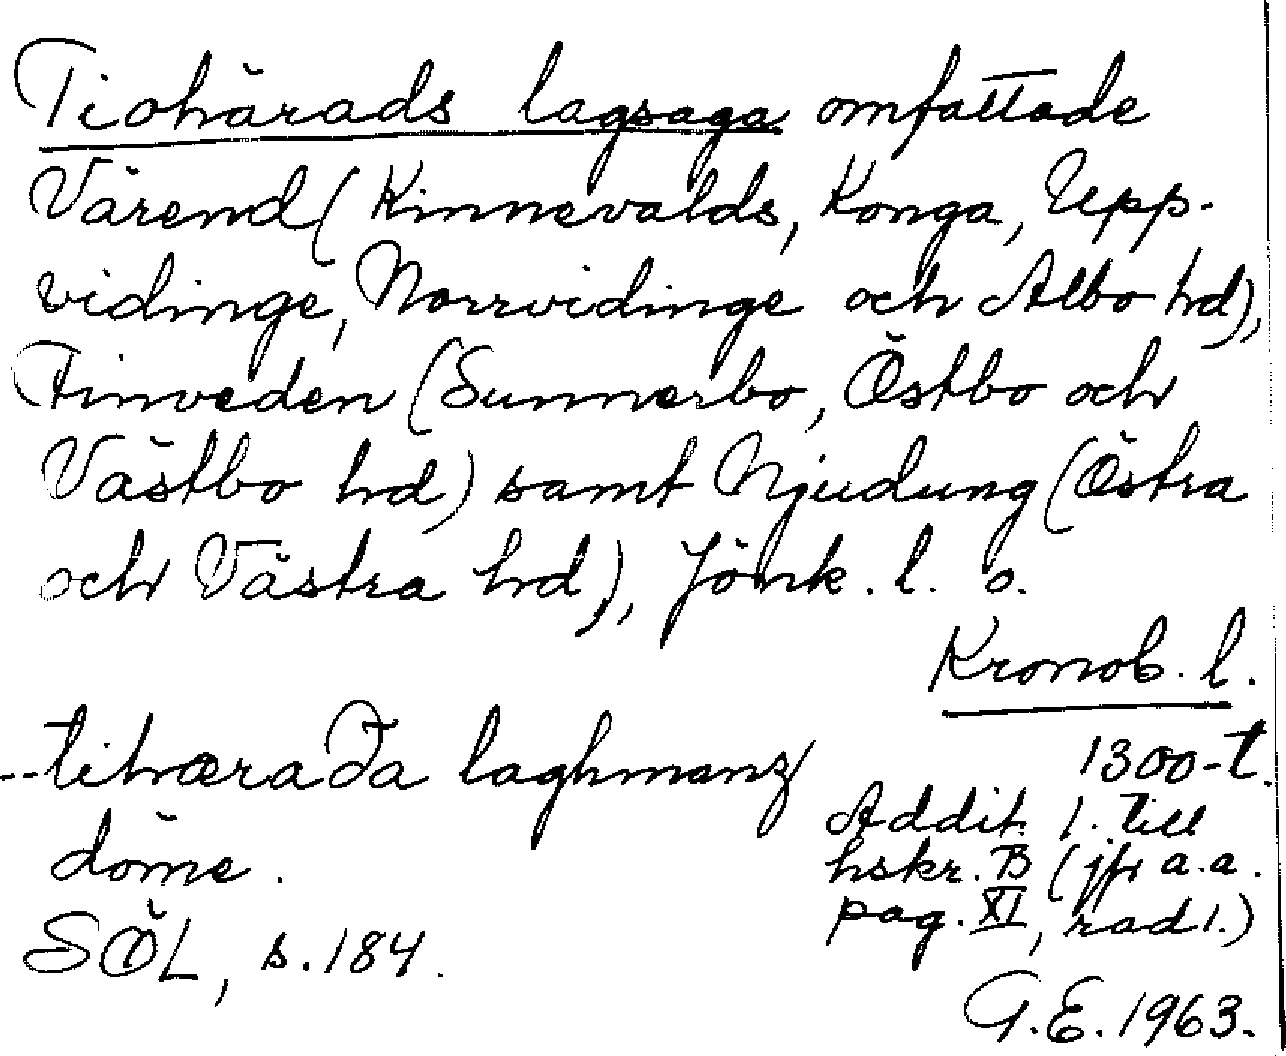 Tiohärads lagsaga omfattade
Värend (Kinnevalds, Konga, Upp-
vidinge, Norrvidinge och Albo hd),
Finveden (Sunnerbo, Östbo och
Västbo hd) samt Njudung (Östra
och Västra hd), Jönk. l. o.
Kronob. l.
--tihæraða laghmanz
döme.
1300-t.
Addit. 1. till
hskr. B (jfr a.a.
pag. XI, rad 1.)
SÖL, s. 184.
G.E. 1963.